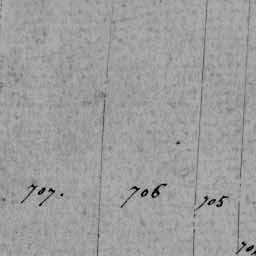 707. 706 705